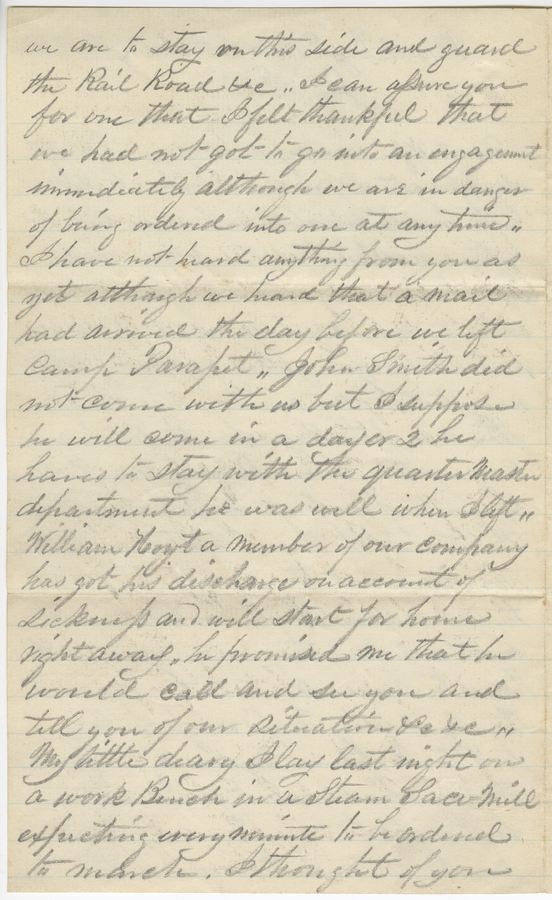 we are to stay on this side and guard
the Rail Road &c ,, I can assure you
for one that I felt thankful that
we had not got to go into an engagement
immediately although we are in danger
of being ordered into one at any time ,,
I have not heard anything from you as
yet although we heard that a mail
had arrived the day before we left
Camp Parapet ,, John Smith did
not come with us but I suppose
he will come in a day or 2 he
haves to stay with the quarter Master
department he was well when I left ,,
William Hoyt a member of our company
has got his discharge on account of
sickness and will start for home
right away ,, he promised me that he
would call and see you and
tell you of our situation &c &c ,,
My little diary I lay last night on
a work Bench in a Steam Saw Mill
expecting every minute to be ordered
to march . I thought of you